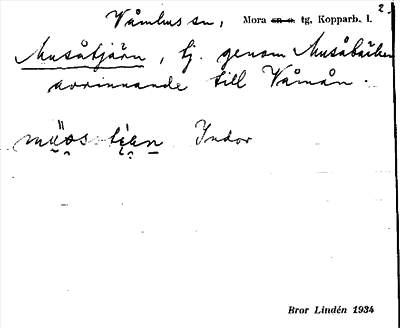 Våmhus sn, Mora sn o. tg, Kopparb. l. 2.
Musåtjärn, tj. genom Musåbäcken
avrinnande till Våmån.
Indor
Bror Lindén 1934